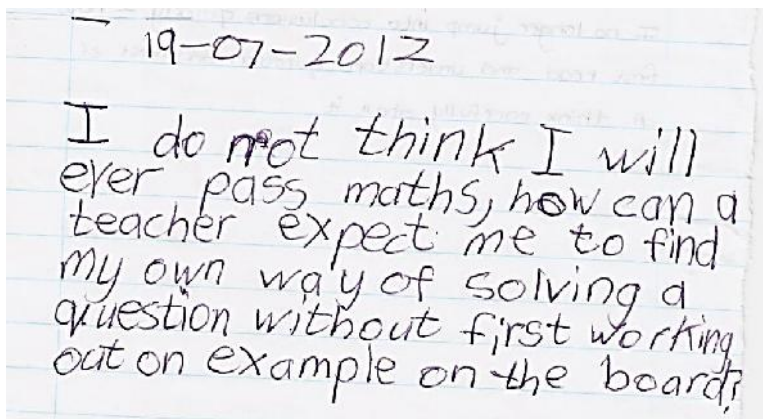 – 19-07-2012
I do not think I will
ever pass maths, how can a
teacher expect me to find
my own way of solving a
question without first working
out on example on the board?